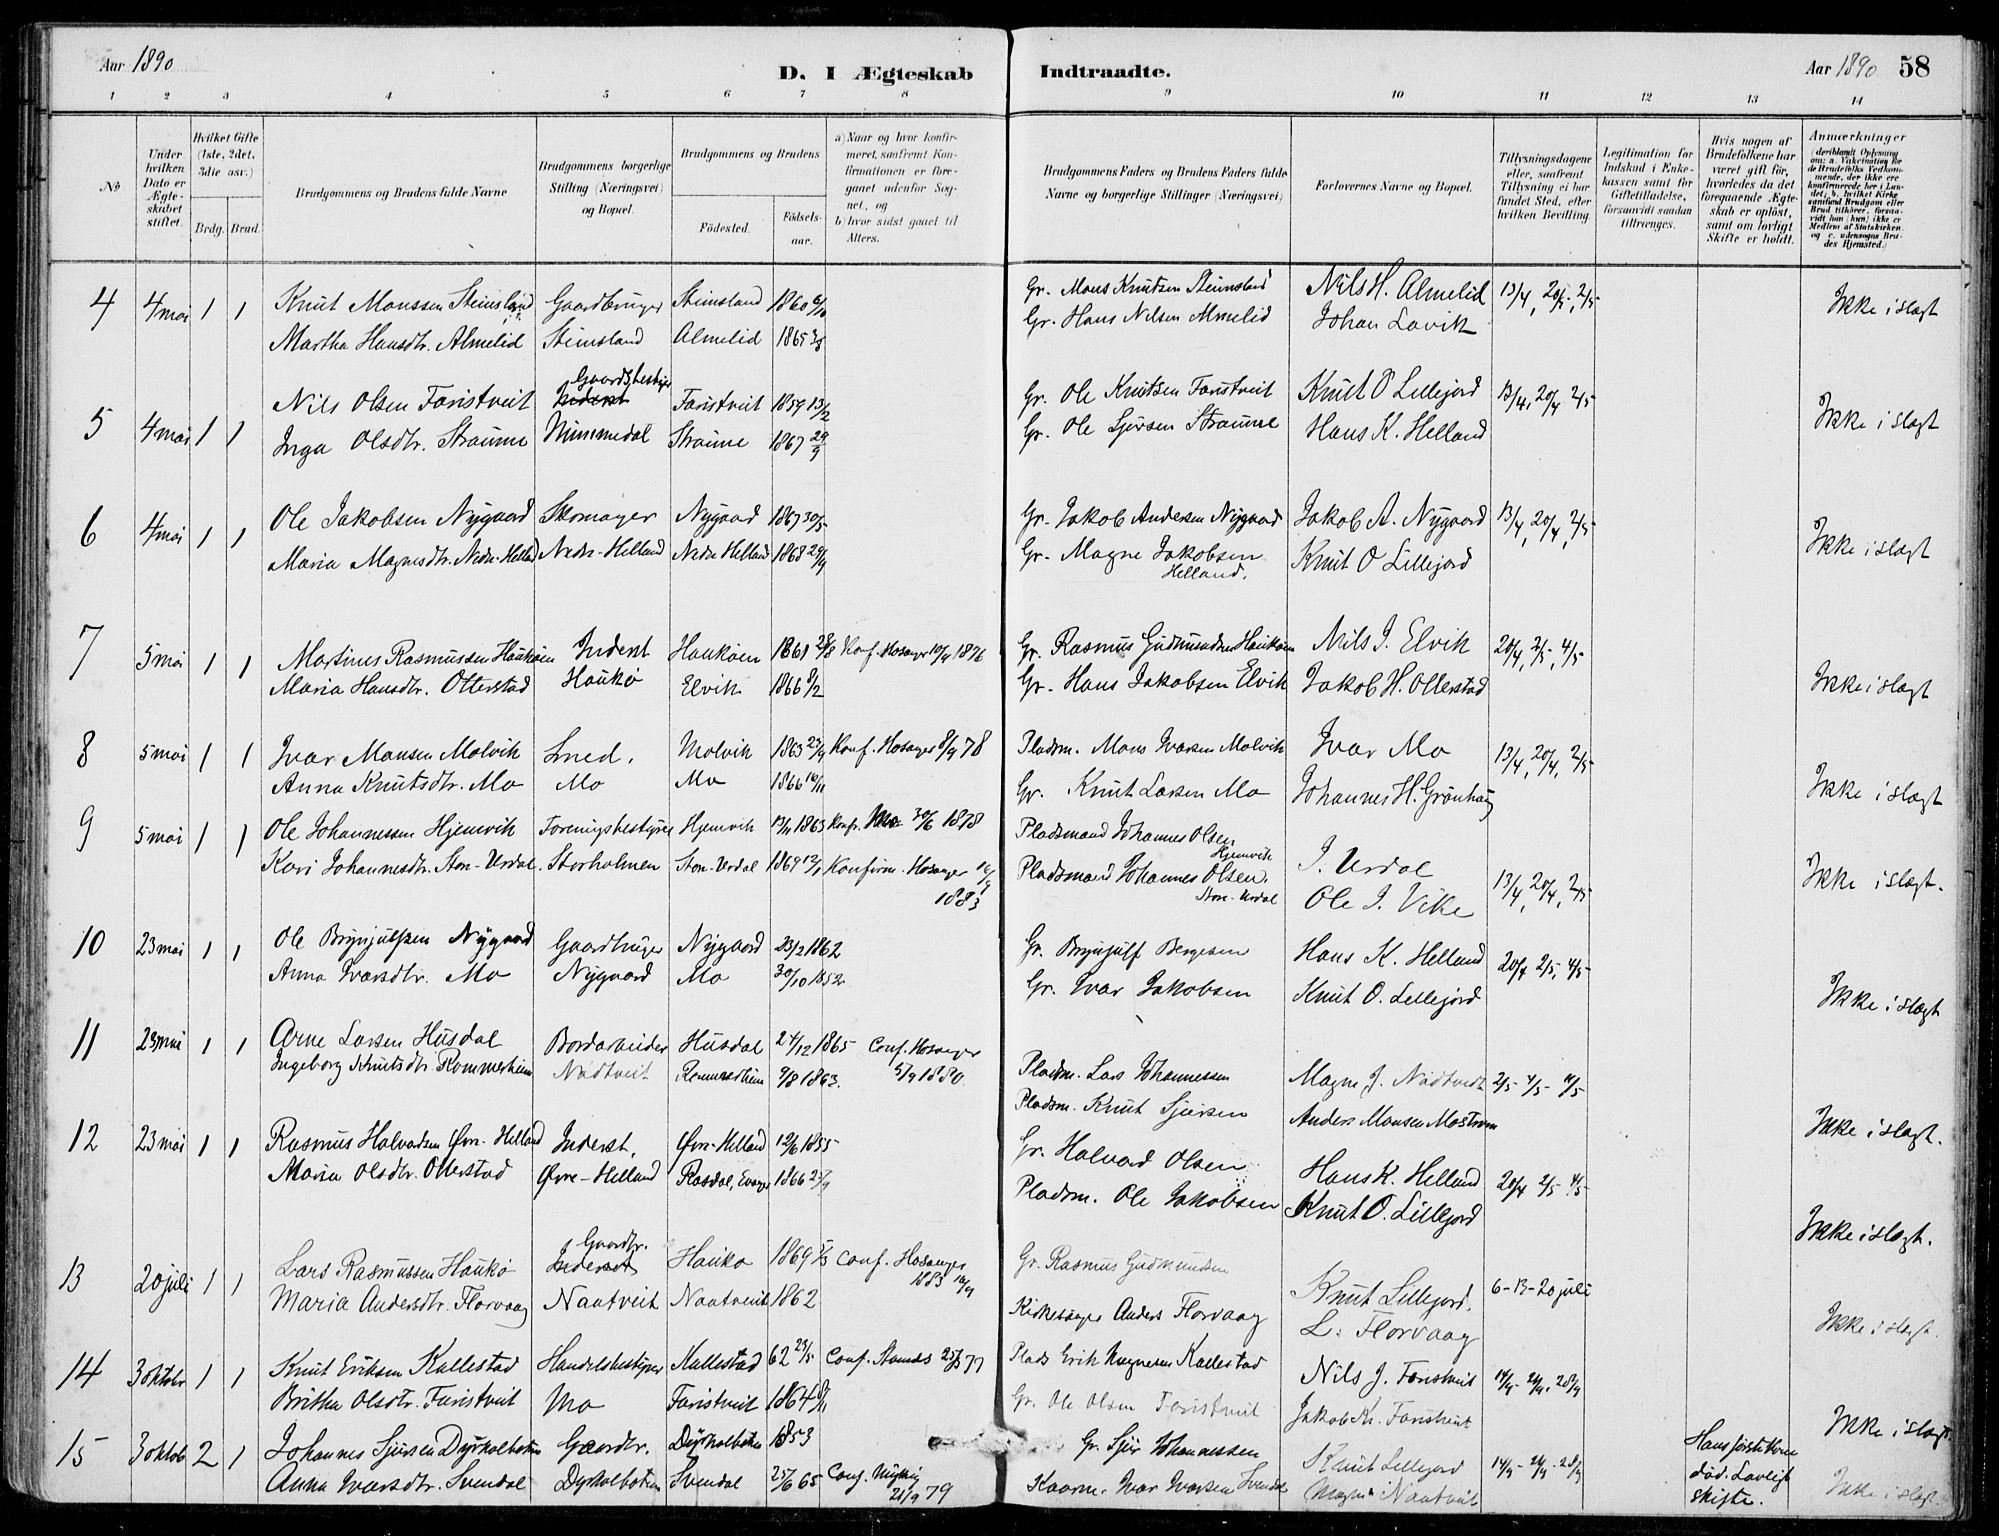 Aar 1890
D. I Ægteskab Indtraadte.
Aar 1890 58
1 2 3 4 5 6 7 8 9 10 11 12 13 14
No
Under hvilken Dato er Ægteskabet stiftet.
Hvilket Gifte (1ste, 2det, 3die osv.)
Brdg. Brud.
Brudgommens og Brudens fulde Navne
Brudgommens borgerlige Stilling (Næringsvei) og Bopæl.
Brudgommens og Brudens
Fødested. Fødselsaar.
a) Naar og hvor konfirmeret, saafremt Konfirmationen er foregaaet udenfor Sognet, og
b) hvor sidst gaaet til Alters.
Brudgommens Faders og Brudens Faders fulde Navne og borgerlige Stillinger (Næringsvei)
Forlovernes Navne og Bopæl.
Tillysningsdagene eller, saafremt Tillysning ei har fundet Sted, efter hvilken Bevilling.
Legitimation for Indskud i Enkekassen samt for Giftetilladelse, forsaavidt saadan tiltrænges.
Hvis nogen af Brudefolkene har været gift før, hvorledes da det foregaaende Ægteskab er opløst, samt om lovligt Skifte er holdt.
Anmærkninger
(deriblandt Oplysning om: a. Vakcination for de Brudefolks Vedkommende, der ikke ere konfirmerede her i Landet; b. hvilket Kirkesamfund Brudgom eller Brud tilhører, forsaavidt han (hun) ikke er Medlem af Statskirken, og c. udensogns Brudes Hjemsted.)
4 4 mai 1 1 Knut Monssen Steinsland Gaardbruger Steinsland 1860 Gr. Mons Knutsen Steinsland Nils H. Almelid 13/4, 20/4, 2/5 Ikke i slegt
Martha Hansdtr. Almelid Steinsland Almelid 1865 Gr. Hans Nilsen Almelid Johan Lavik
5 4 mai 1 1 Nils Olsen Faristveit Gaardsbestyrer Faristveit 1859 13/2 Gr. Ole Knutsen Faristveit Knut O Lillejord 13/4, 20/4 2/5 Ikke i slegt
Inga Olsdtr. Straume Straume 1867 29/9 Gr. Ole Sjursen Straume Hans K. Helland
6 4 mai 1 1 Ole Jakobsen Nygaard Skomager Nygaard 1867 30/5 Gr. Jakob Andersen Nygaard Jakob A. Nygaard 13/4, 20/4, 2/5 Ikke i slegt
Maria Magnesdtr. Nedre-Helland Nedre-Helland Nedre Helland 1868 29/9 Gr. Magne Jakobsen Helland. Knut O Lillejord
7 5 mai 1 1 Martinus Rasmussen Haukøen Inderst Haukøen 1861 28/8 Konf. Hosanger 10/9 1876 Gr. Rasmus Gudmundsen Haukøen Nils J. Elvik 20/4, 2/5, 4/5 Ikke i slegt
Maria Hansdtr. Otterstad Haukø Elvik 1866 Gr. Hans Jakobsen Elvik Jakob H. Otterstad
8 5 mai 1 1 Ivar Monsen Molvik Smed. Molvik 1863 23/9 Konf. Hosanger 8/9 78 Pladsm. Mons Ivarsen Molvik Ivar Mo 13/4, 20/4, 2/5 Ikke i slegt
Anna Knutsdtr. Mo Mo Mo 1866 Gr. Knut Larsen Mo Johannes H. Grønhaug
9 5 mai 1 1 Ole Johannessen Hjemvik Foreningsbestyrer Hjemvik 13/11 1863 Konf. Mo 30/6 1878 Pladsmand Johannes Olsen Hjemvik J. Urdal 13/4, 20/4, 2/5 Ikke i slegt.
Kari Johannesdtr. Ston-Urdal Storholmen Ston-Urdal 1869 Konfirm. Hosanger 16/9 1883 Pladsmand Johannes Olsen. Ston-Urdal Ole J. Vike
10 23 mai 1 1 Ole Brynjulfsen Nygaard Gaardbruger Nygaard 23/2 1862 Gr. Brynjulf Bergesen Hans K. Helland 20/4 2/5, 4/5 Ikke i slegt
Anna Ivarsdtr. Mo Nygaard Mo 30/10 1852 Gr. Ivar Jakobsen Knut O. Lillejord
11 23 mai 1 1 Arne Larsen Husdal Bordarbeider Husdal 24/12 1865 Conf. Hosanger 5/9 1880. Pladsm. Lars Johannessen Magne J. Nødtvedt 2/5 - 4/5 - 11/5 Ikke i slegt.
Ingeborg Knutsdtr. Rommerheim Nødtveit 9/8 1863. Pladsm. Knut Sjursen Anders Monsen Mostrom
12 23 mai 1 1 Rasmus Halvadsen Øvre-Helland Inderst, Øvre-Helland 12/6 1855 Gr. Halvard Olsen Hans K. Helland 20/4 2/5 4/5 Ikke i slegt.
Maria Olsdtr. Otterstad Øvre-Helland Rasdal, Evanger 1866 25/9 Pladsm. Ole Jakobsen Knut O. Lillejord
13 20 juli 1 1 Lars Rasmussen Haukø Gaardbr. Inderst Haukø 1869 Conf. Hosanger 1883 16/9 Gr. Rasmus Gudmundsen Knut Lillejord. 6-13-20 juli Ikke i slegt.
Maria Andersdtr. Florvaag Nautveit Nautveit 1862 Kirkesanger Anders Florvaag L. Florvaag
14 3 oktobr 1 1 Knut Eriksen Kallestad Handelsbestyrer Kallestad 62 23/5 Conf. 77 Plads Erik Magnesen Kallestad Nils J. Faristveit 14/9 - 21/9, 28/9 Ikke i slegt
Britha Olsdtr. Faristveit Mo Faristveit 1864 Gr. Ole Olsen Faristveit Jakob Kn. Faristveit
15 3 oktob 2 1 Johannes Sjursen Dyrkolbotn Gaardbr. Dyrkolbotn 1853 Gr. Sjur Johannessen Knut Lillejord 14/9 - 21/9 - 28/9 Hans første Kone død. Lovligt skifte. Ikke i slegt.
Anna Ivarsdtr. Svendal Dyrkolbotn Svendal 25/6 65 Conf. 21/9 79 Kaarm. Ivar Ivarsen Svendal Magne Nautveit